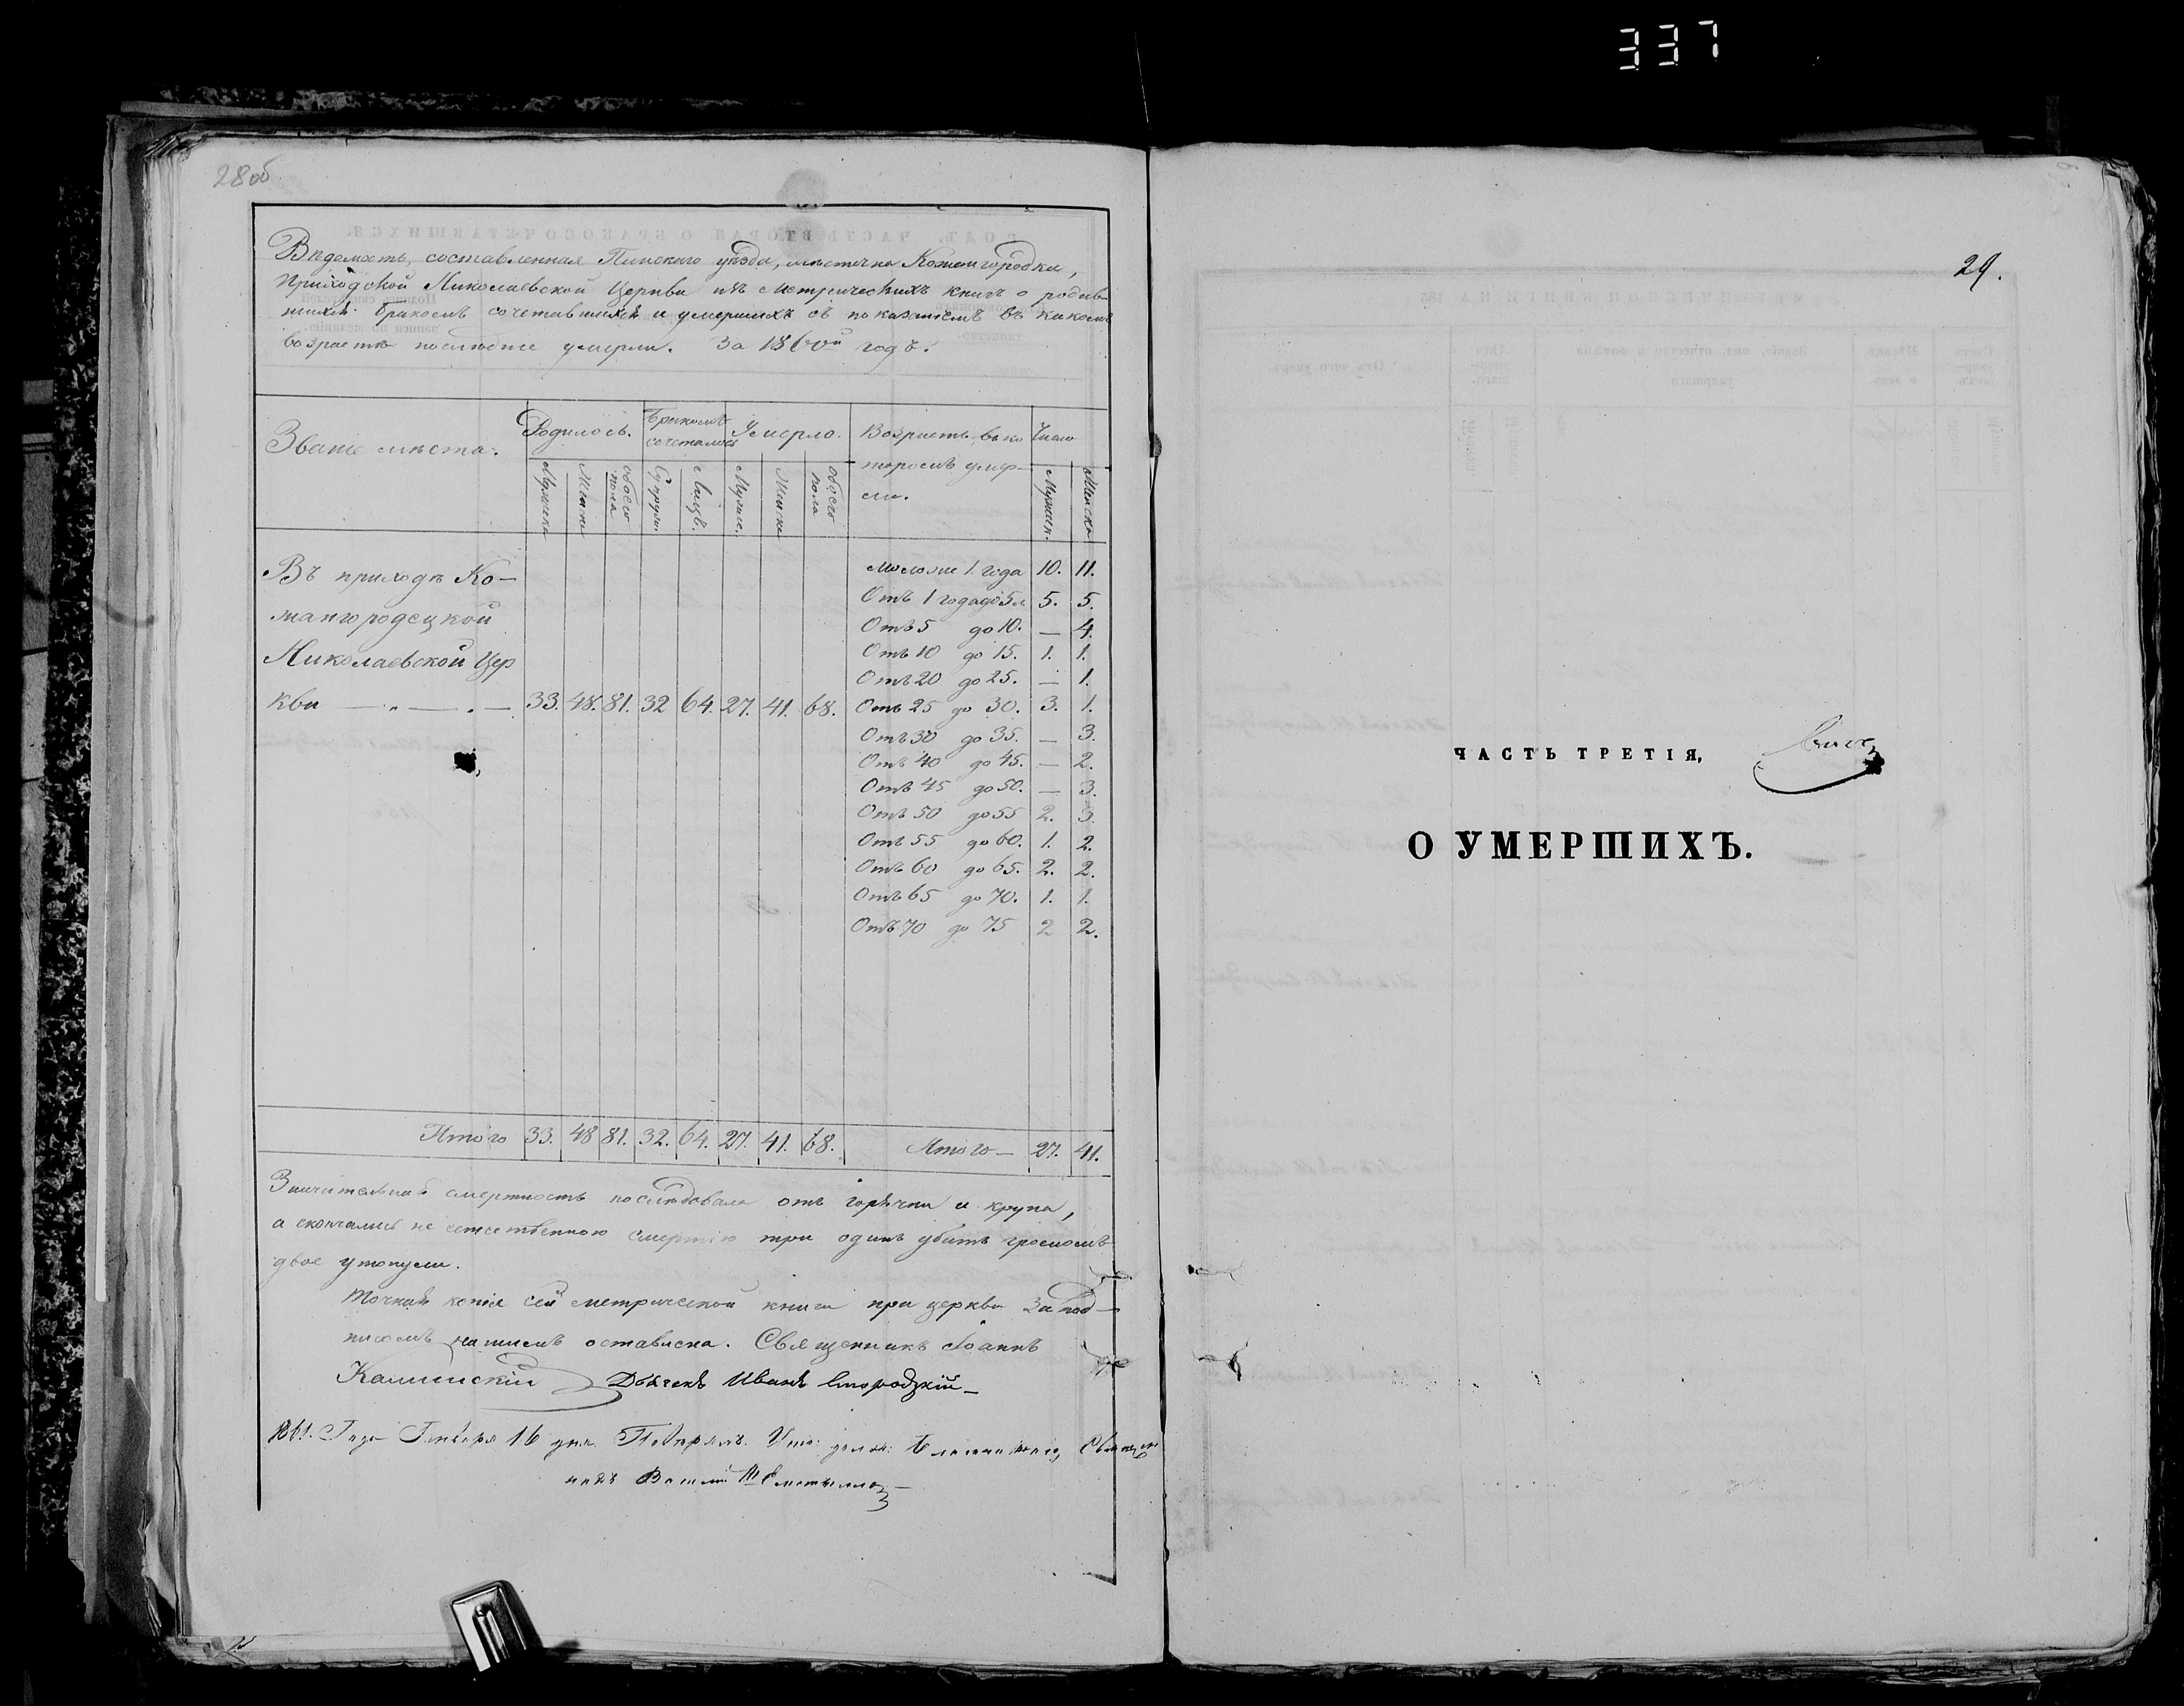 337
28об
Вѣдомость, составленная Пинскаго уѣзда, мѣстечка Кожангородка,
Приходской Николаевской Церкви изъ метрическихъ книгъ о родив-
шихся бракомъ сочетавшихся и умершихъ съ показаніемъ въ какомъ
возрастѣ послѣдніе умерли. За 1860й годъ.
Званіе мѣста. Родилось. Бракомъ сочеталось Умерло. Возрастъ въ ко- Число
торомъ умер-
ли.
Мужеска Женска обоего пола Супруж. Лицъ. Мужес. Женска обоего пола Мужеск. Женска
Въ приходѣ Ко-
жангородецкой
Николаевской Цер
кви 33. 48. 81. 32 64. 27. 41. 68.
Моложе 1. года 10. 11.
Отъ 1 года до 5 л. 5. 5.
Отъ 5 до 10. — 4.
Отъ 10 до 15. 1. 1.
Отъ 20 до 25. — 1.
Отъ 25 до 30. 3. 1.
Отъ 30 до 35. — 3.
Отъ 40 до 45. — 2.
Отъ 45 до 50. — 3.
Отъ 50 до 55 2. 3.
Отъ 55 до 60. 1. 2.
Отъ 60 до 65. 2. 2.
Отъ 65 до 70. 1. 1.
Отъ 70 до 75 2 2.
Итого 33. 48 81. 32. 64. 27. 41. 68. Итого — 27. 41.
Значительная смертность послѣдовала отъ горячки и крупа,
а скончались не естественною смертію три одинъ убитъ громомъ
двое утонули.
Точная копія сей метрической книги при церкви за под-
писомъ нашимъ оставлена. Священникъ Іоаннъ
Калинскій Дьячекъ Иванъ Смородзкій —
1861. Года Генваря 16 дня.
Василій
29.
ЧАСТЬ ТРЕТІЯ,
О УМЕРШИХЪ.